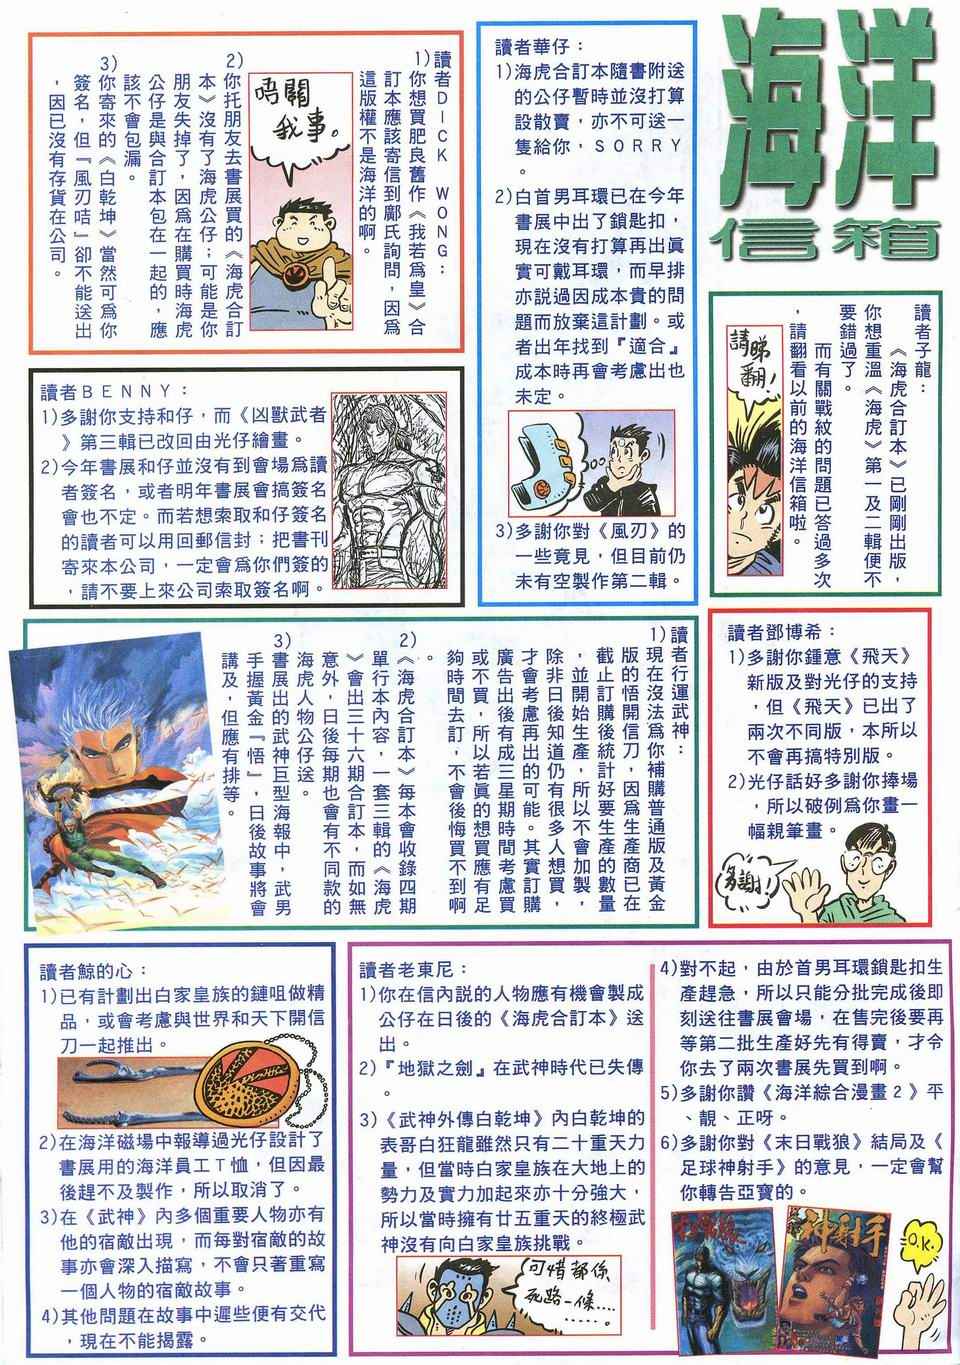 海洋
信箱
讀者子龍：
《海虎合訂本》已剛剛出版，
你想重溫《海虎》第一及二輯便不
要錯過了。
而有關戰紋的問題已答過多次
，請翻看以前的海洋信箱啦。
請睇
翻！
讀者華仔：
1)海虎合訂本隨書附送
的公仔暫時並沒打算
設散賣，亦不可送一
隻給你，SORRY
。
2)白首男耳環已在今年
書展中出了鎖匙扣，
現在沒有打算再出眞
實可戴耳環，而早排
亦説過因成本貴的問
題而放棄這計劃。或
者出年找到『適合』
成本時再會考慮出也
未定。
3)多謝你對《風刃》的
一些竟見，但目前仍
未有空製作第二輯。
讀者DICK WONG：
1)你想買肥良舊作《我若爲皇》合
訂本應該寄信到鄺氏詢問，因爲
這版權不是海洋的啊。
唔關
我事。
2)你托朋友去書展買的《海虎合訂
本》沒有了海虎公仔；可能是你
朋友失掉了，因爲在購買時海虎
公仔是與合訂本包在一起的，應
該不會包漏。
3)你寄來的《白乾坤》當然可爲你
簽名，但『風刃咭』卻不能送出
，因已沒有存貨在公司。
讀者BENNY：
1)多謝你支持和仔，而《凶獸武者
》第三輯已改回由光仔繪畫。
2)今年書展和仔並沒有到會場爲讀
者簽名，或者明年書展會搞簽名
會也不定。而若想索取和仔簽名
的讀者可以用回郵信封；把書刊
寄來本公司，一定會爲你們簽的
，請不要上來公司索取簽名啊。
讀者鄧博希：
1)多謝你鍾意《飛天》
新版及對光仔的支持
，但《飛天》已出了
兩次不同版，本所以
不會再搞特別版。
2)光仔話好多謝你捧場
，所以破例爲你畫一
幅親筆畫。
多謝！
讀者行運武神：
1)現在沒法爲你補購普通版及黃金
版的悟開信刀，因爲生產商已在
截止訂購後統計好要生產的數量
，並開始生產，所以不會加製，
除非日後知道仍有很多人想買，
才會考慮再出的可能。其實訂購
廣告出後有成三星期時間考慮買
或不買，所以若眞的想買應有足
夠時間去訂，不會後悔買不到啊
。
2)《海虎合訂本》每本會收錄四期
單行本內容，一套三輯的《海虎
》會出三十六期合訂本，而如無
意外，日後每期也會有不同款的
海虎人物公仔送。
3)書展出的武神巨型海報中，武男
手握黃金『悟』，日後故事將會
講及，但應有排等。
讀者鯨的心：
1)已有計劃出白家皇族的鏈咀做精
品，或會考慮與世界和天下開信
刀一起推出。
2)在海洋磁場中報導過光仔設計了
書展用的海洋員工T恤，但因最
後趕不及製作，所以取消了。
3)在《武神》內多個重要人物亦有
他的宿敵出現，而每對宿敵的故
事亦會深入描寫，不會只著重寫
一個人物的宿敵故事。
4)其他問題在故事中遲些便有交代
，現在不能揭露。
讀者老東尼：
1)你在信內說的人物應有機會製成
公仔在日後的《海虎合訂本》送
出。
2)『地獄之劍』在武神時代已失傳
。
3)《武神外傳白乾坤》內白乾坤的
表哥白狂龍雖然只有二十重天力
量，但當時白家皇族在大地上的
勢力及實力加起來亦十分強大，
所以當時擁有廿五重天的終極武
神沒有向白家皇族挑戰。
可惜都係
死路一條……
……
4)對不起，由於首男耳環鎖匙扣生
產趕急，所以只能分批完成後即
刻送往書展會場，在售完後要再
等第二批生產好先有得賣，才令
你去了兩次書展先買到啊。
5)多謝你讚《海洋綜合漫畫2》平
、靚、正呀。
6)多謝你對《末日戰狼》結局及《
足球神射手》的意見，一定會幫
你轉告亞寶的。
神射手
O.K.